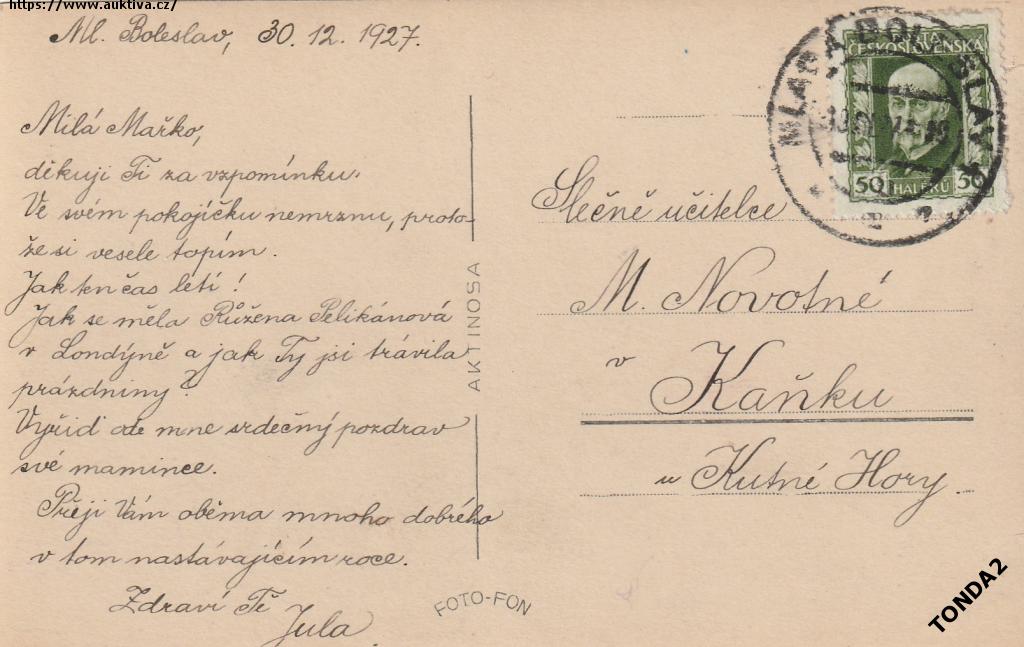 https://www.auktiva.cz/
Ml. Boleslav, 30. 12. 1927.
Milá Mařko,
děkuji Ti za vzpomínku.
Ve svém pokojíčku nemrznu, proto-
že si vesele topím.
Jak ten čas letí!
Jak se měla Růžena Pelikánová
v Londýně a jak Ty jsi trávila
prázdniny?
Vyřiď ode mne srdečný pozdrav
své mamince.
Přeji Vám oběma mnoho dobrého
v tom nastávajícím roce.
Zdraví Tě
Jula
AKTINOSA
FOTO-FON
POŠTA
ČESKOSLOVENSKÁ
50 HALÉŘŮ 50
MLADÁ BOLESLAV
Slečně učitelce
M. Novotné
v
Kaňku
u Kutné Hory.
TONDA2